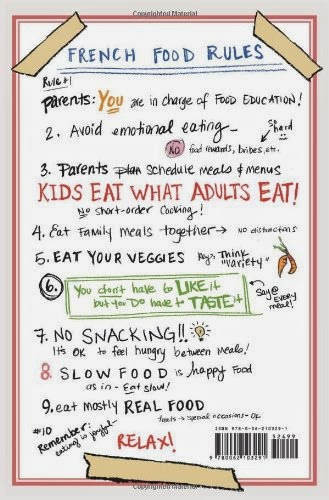 Copyrighted Material
FRENCH FOOD RULES
Rule #1
Parents: You are in charge of FOOD EDUCATION!
2. Avoid emotional eating
So hard
NO food rewards, bribes, etc.
3. Parents plan schedule meals & menus
KIDS EAT WHAT ADULTS EAT!
No short-order cooking!
4. Eat family meals together → No distractions
5. EAT YOUR VEGGIES Key: Think "Variety"
6. You don't have to LIKE it
but you DO have to TASTE it
Say @ EVERY meal!
7. NO SNACKING!!
It's OK to feel hungry between meals!
8. SLOW FOOD is happy Food
as in - Eat slow!
9. eat mostly REAL FOOD
treats → special occasions - OK
#10
Remember:
eating is joyful -
RELAX!
ISBN 978-0-06-210329-1
52499
9 780062 103291
Copyrighted Material